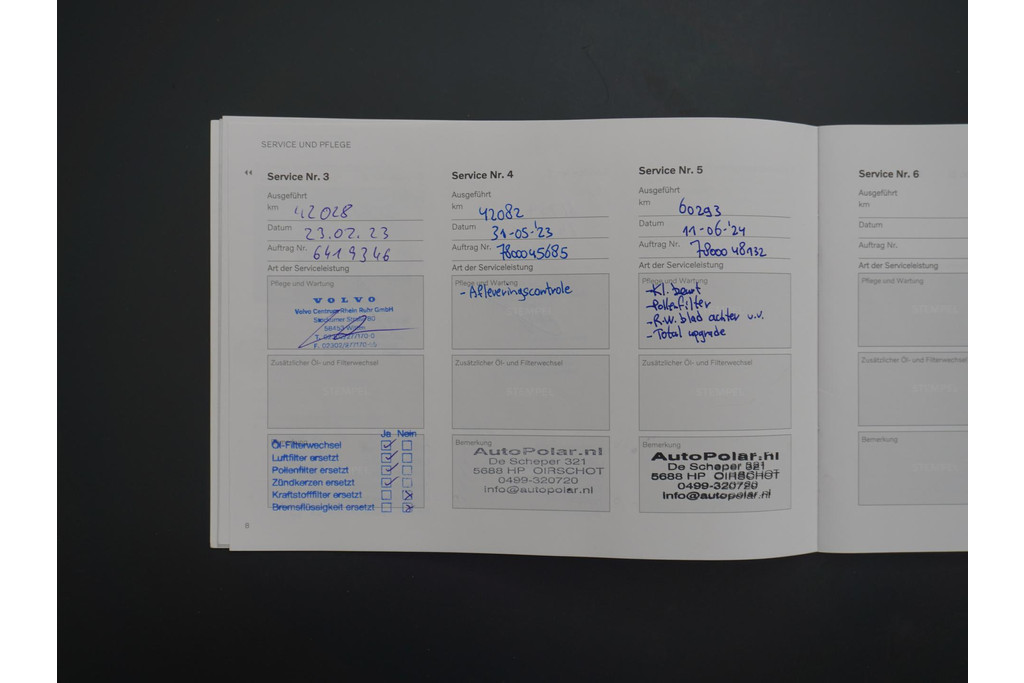 SERVICE UND PFLEGE
Service Nr. 3
Ausgeführt
km 42028
Datum 23.02.23
Auftrag Nr. 6419346
Art der Serviceleistung
Pflege und Wartung
VOLVO
Volvo Centrum Rhein Ruhr GmbH
Zusätzlicher Öl- und Filterwechsel
Ja Nein
Öl-Filterwechsel
Luftfilter ersetzt
Pollenfilter ersetzt
Zündkerzen ersetzt
Kraftstofffilter ersetzt
Bremsflüssigkeit ersetzt
8
Service Nr. 4
Ausgeführt
km 42082
Datum 31-05-'23
Auftrag Nr. 7800045685
Art der Serviceleistung
Pflege und Wartung
- Afleveringscontrole
Zusätzlicher Öl- und Filterwechsel
Bemerkung
AutoPolar.nl
De Scheper 321
5688 HP OIRSCHOT
0499-320720
info@autopolar.nl
Service Nr. 5
Ausgeführt
km 60293
Datum 11-06-'24
Auftrag Nr. 7800048132
Art der Serviceleistung
Pflege und Wartung
- Kl. beurt
- Pollenfilter
- R.w. blad achter v.v.
- Total upgrade
Zusätzlicher Öl- und Filterwechsel
Bemerkung
AutoPolar.nl
De Scheper 321
5688 HP OIRSCHOT
0499-320720
info@autopolar.nl
Service Nr. 6
Ausgeführt
km
Datum
Auftrag Nr.
Art der Serviceleistung
Pflege und Wartung
Zusätzlicher Öl- und Filterwechsel
Bemerkung